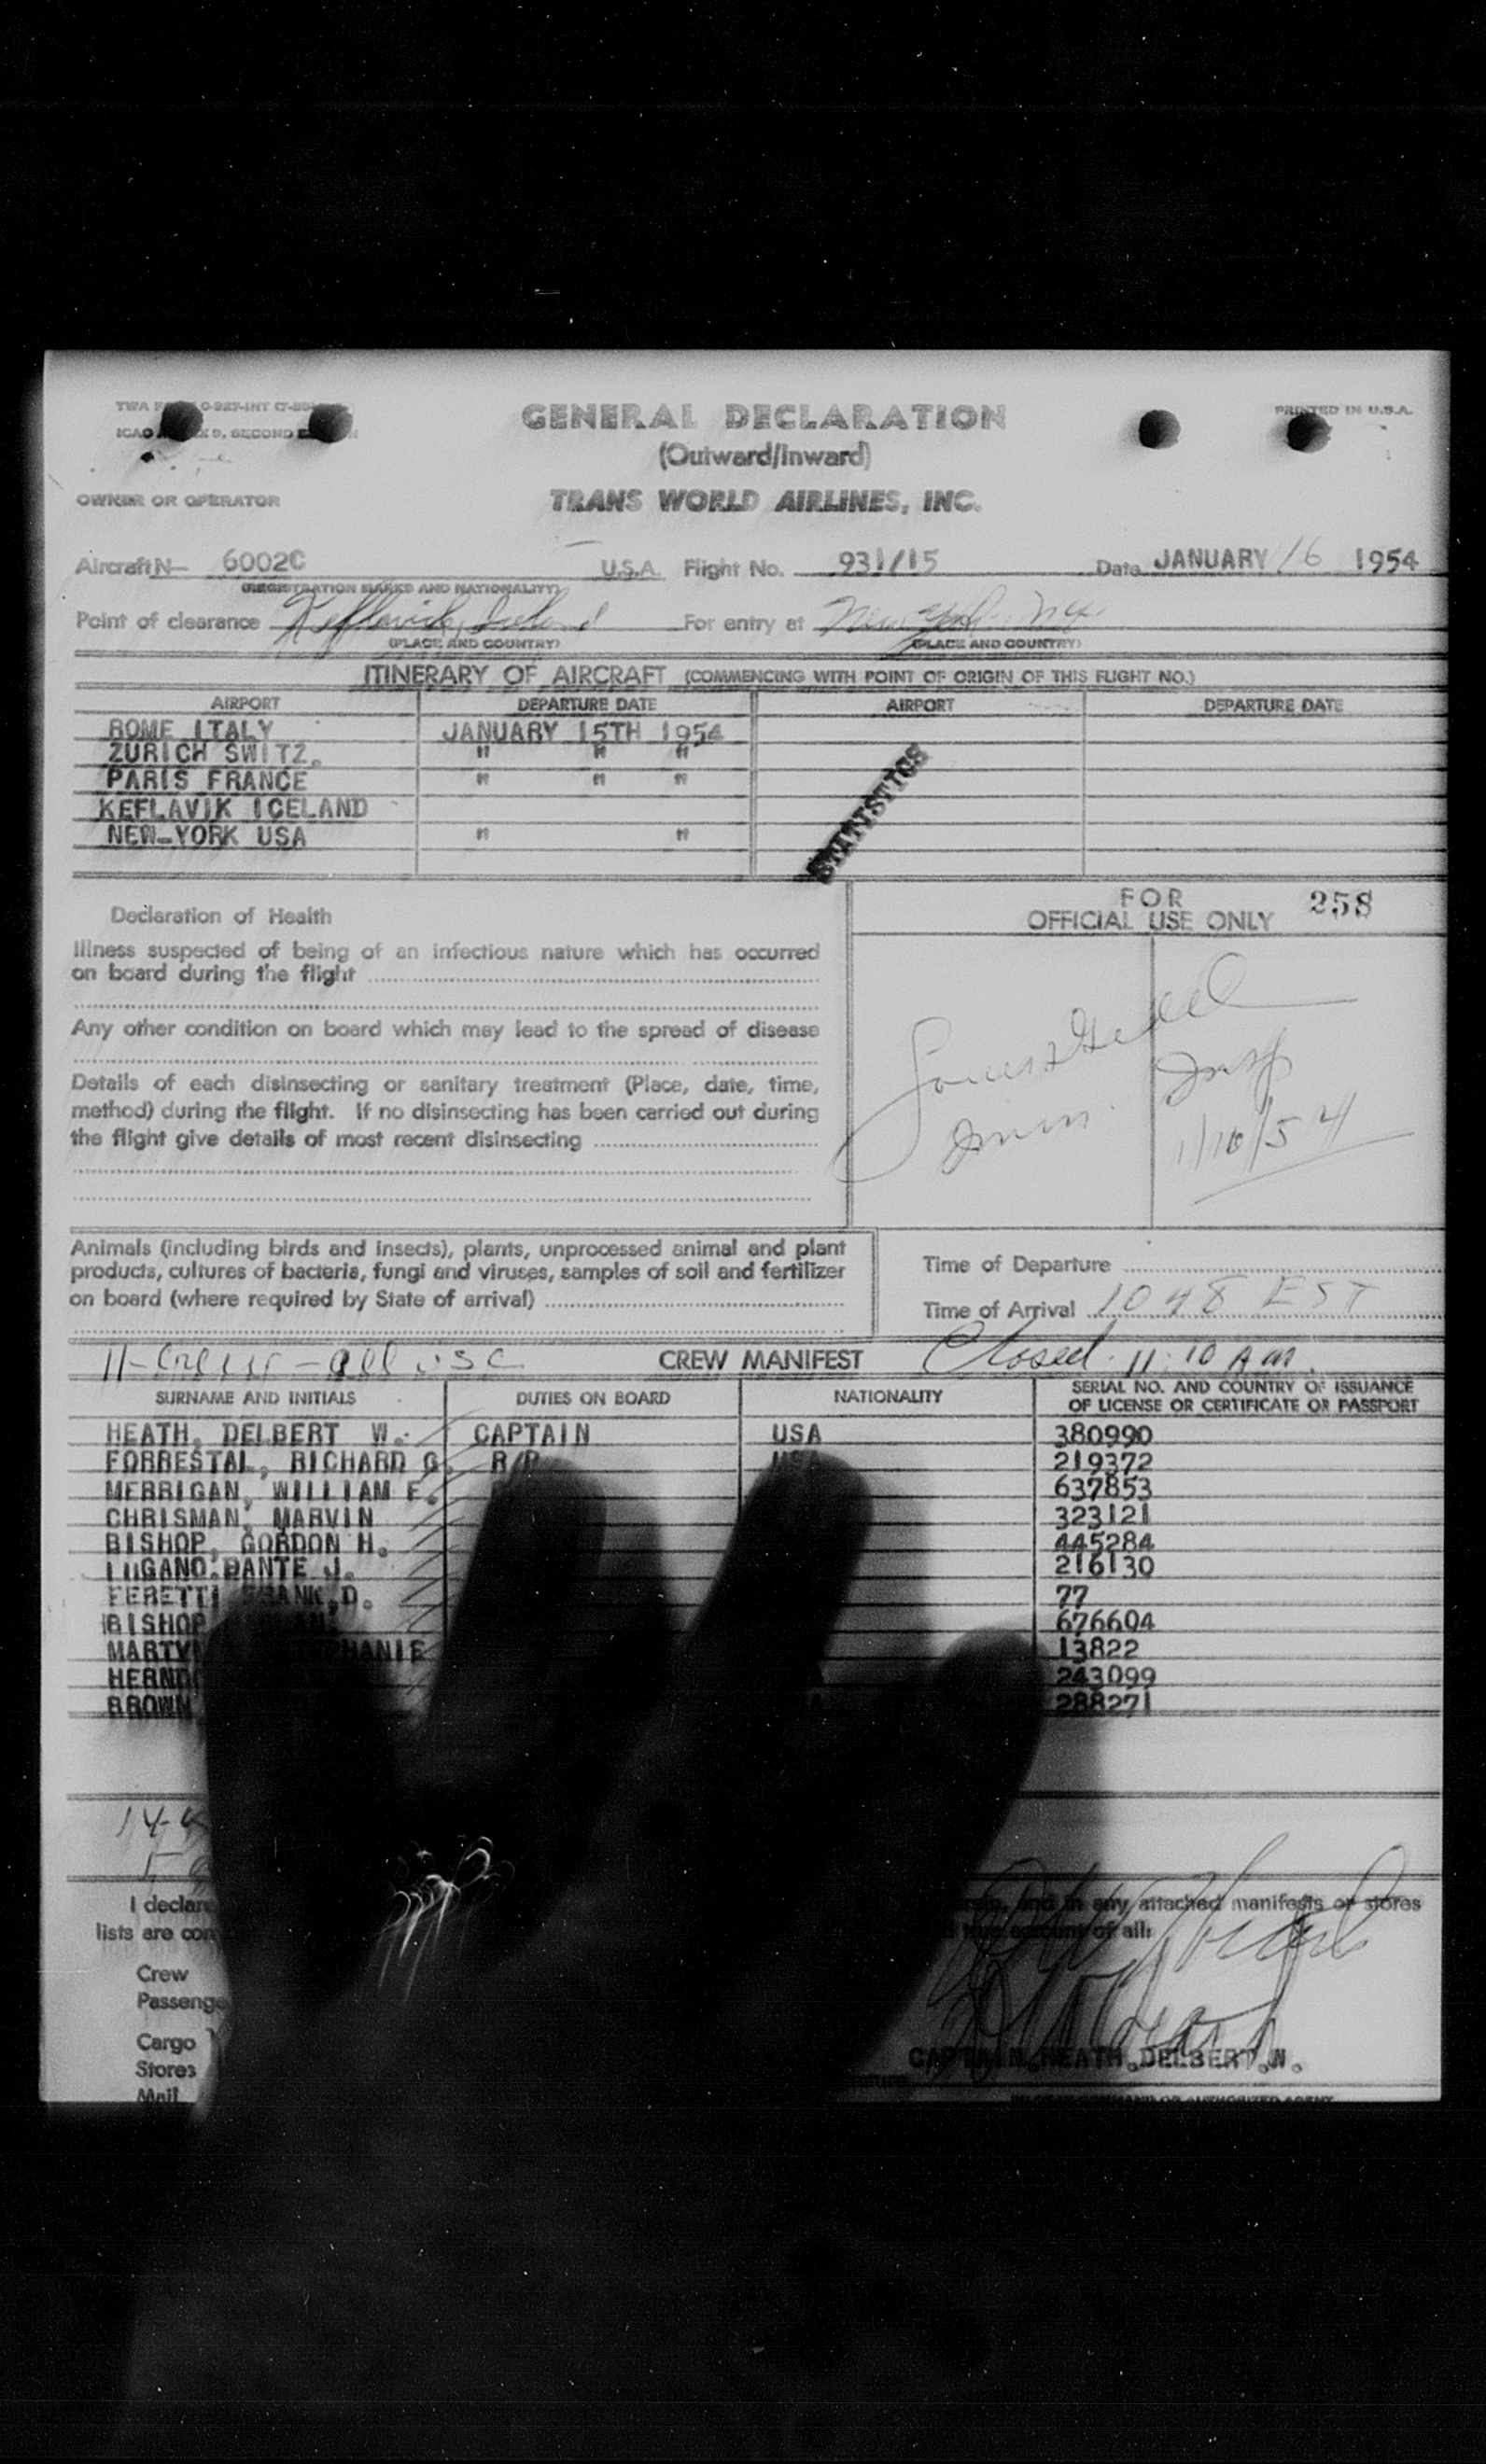 GENERAL DECLARATION
PRINTED IN U.S.A.
(Outward/Inward)
OWNER OR OPERATOR TRANS WORLD AIRLINES, INC.
Aircraft N- 6002C U.S.A. Flight No. 931/15 Date JANUARY 16 1954
(REGISTRATION MARKS AND NATIONALITY)
Point of clearance Keflavik, Iceland For entry at New York, NY
(PLACE AND COUNTRY) (PLACE AND COUNTRY)
ITINERARY OF AIRCRAFT (COMMENCING WITH POINT OF ORIGIN OF THIS FLIGHT NO.)
AIRPORT DEPARTURE DATE AIRPORT DEPARTURE DATE
ROME ITALY JANUARY 15TH 1954
ZURICH SWITZ. " " "
PARIS FRANCE " " "
KEFLAVIK ICELAND
NEW-YORK USA " "
STATISTICS
FOR
OFFICIAL USE ONLY 258
Declaration of Health
Illness suspected of being of an infectious nature which has occurred
on board during the flight
Any other condition on board which may lead to the spread of disease
Details of each disinsecting or sanitary treatment (Place, date, time,
method) during the flight. If no disinsecting has been carried out during
the flight give details of most recent disinsecting
Insp
1/16/54
Animals (including birds and insects), plants, unprocessed animal and plant
products, cultures of bacteria, fungi and viruses, samples of soil and fertilizer
on board (where required by State of arrival)
Time of Departure
Time of Arrival 1048 EST
11-Crew-all USC CREW MANIFEST Closed 11:10 AM.
SURNAME AND INITIALS DUTIES ON BOARD NATIONALITY SERIAL NO. AND COUNTRY OF ISSUANCE
OF LICENSE OR CERTIFICATE OR PASSPORT
HEATH, DELBERT W. CAPTAIN USA 380990
FORRESTAL, RICHARD G. USA 219372
MERRIGAN, WILLIAM E. 637853
CHRISMAN, MARVIN 323121
BISHOP, GORDON H. 445284
LUGANO.DANTE J. 216130
FERETTI FRANK.D. 77
BISHOP 676604
13822
243099
BROWN 288271
I declare
in any attached manifests or stores
lists are
of all:
Crew
Cargo
Stores
Mail
CAPTAIN.HEATH.DELBERT.W.